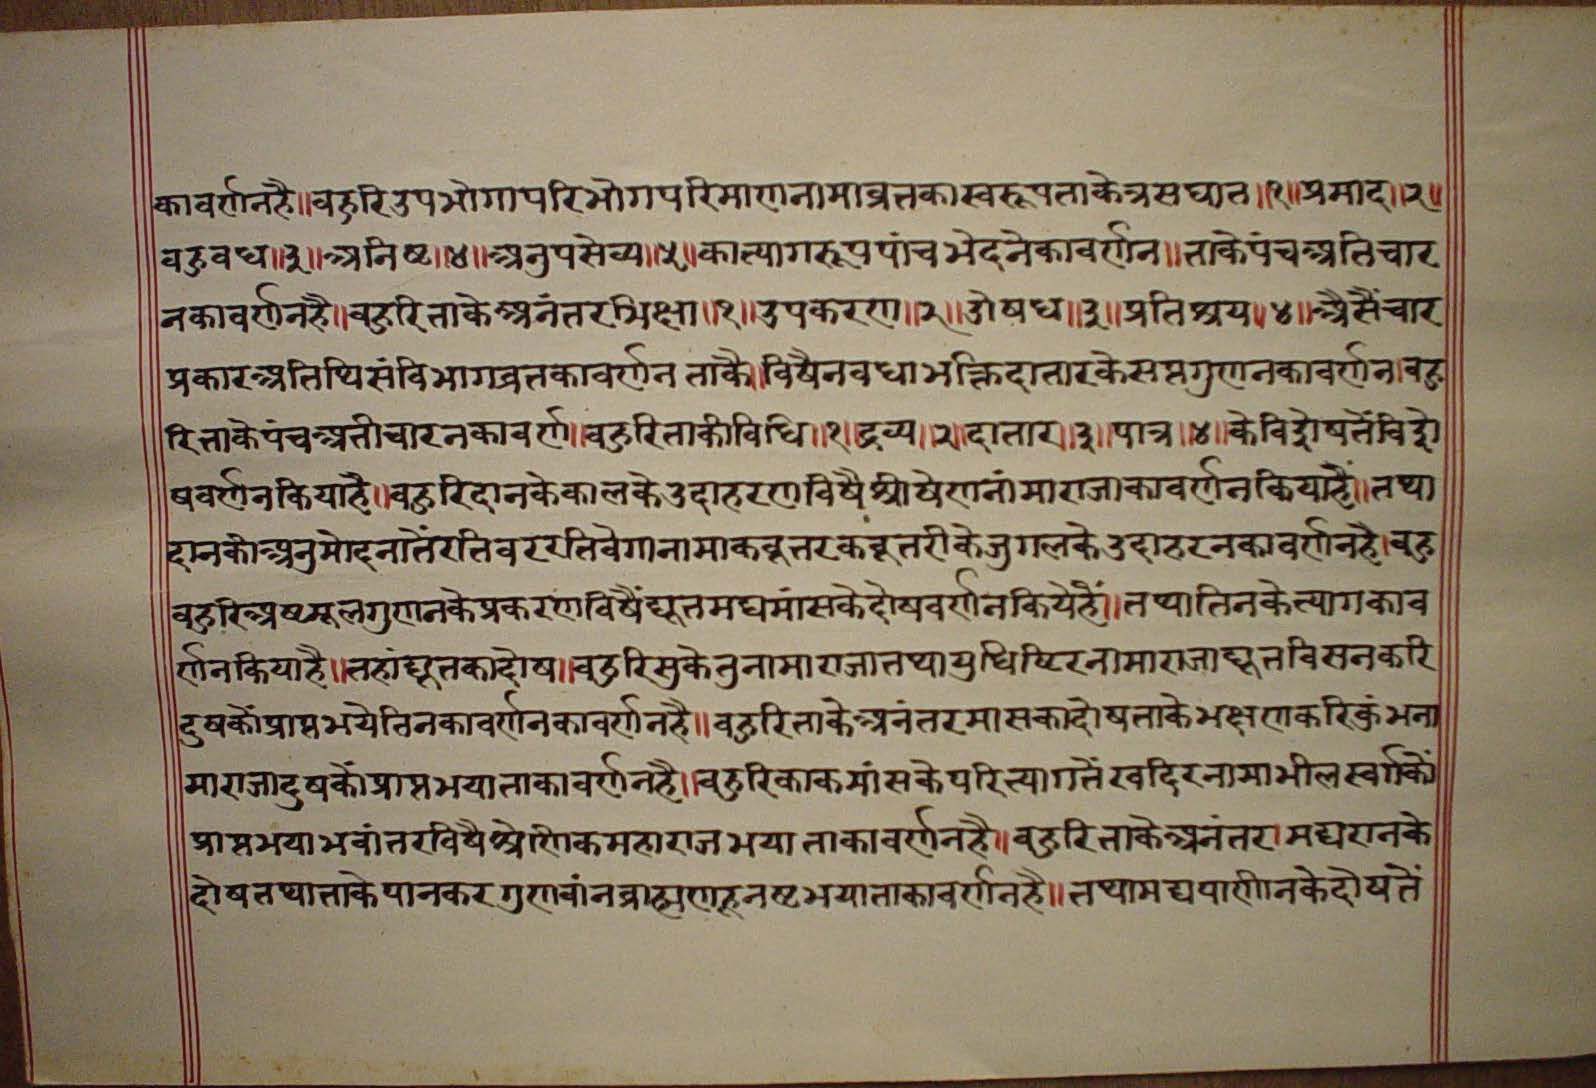 कावर्णनहै॥बहुरिउपभोगापरिभोगपरिमाणनामाव्रतकास्वरूपताकेत्रसघात॥१॥प्रमाद॥२॥
बहुवध॥३॥अनिष्ट॥४॥अनुपसेव्य॥५॥कात्यागरूपपांचभेदनेकावर्णन॥ताकेपंचअतिचार
नकावर्णनहै॥बहुरिताकेअनंतरभिक्षा॥१॥उपकरण॥२॥उोषध॥३॥प्रतिश्रय॥४॥अैसैंचार
प्रकारअतिथिसंविभागव्रतकावर्णनताकै॥विषैनवधाभक्तिदातारकेसप्तगुणनकावर्णन।बहु
रिताकेपंचअतीचारनकावर्ण॥बहुरिताकीविधि॥१॥द्रव्य॥२॥दातार॥३॥पात्र॥४॥केविशेषतेंविशे
षवर्णनकियाहै॥बहुरिदानकेकालकेउदाहरणविषैश्रीषेणनांमाराजाकावर्णनकियाहैं॥तथा
दानकीअनुमोदनातेंरतिवररतिवेगानामाकबूतरकबूतरीकेजुगलकेउदाहरनकावर्णनहै।बहु
बहुरिअष्टमूलगुणनकेप्रकरणविषैंद्यूतमद्यमांसकेदोषवर्णनकियेहैं॥तथातिनकेत्यागकाव
र्णनकियाहै॥तहांद्यूतकादोष॥बहुरिसुकेतुनामाराजातथायुधिष्टिरनामाराजाद्यूतविसनकरि
दुषकोंप्राप्तभयेतिनकावर्णनकावर्णनहै॥बहुरिताकेअनंतरमासकादोषताकेभक्षणकरिकुंभना
माराजादुषकोंप्राप्तभयाताकावर्णनहै॥बहुरिकाकमांसकेपरित्यागतेंखदिरनामाभीलस्वर्गकों
प्राप्तभयाभवांतरविषैश्रेणिकमहाराजभयाताकावर्णनहै॥बहुरिताकेअनंतरामद्यरानके
दोषतथाताकेपानकरगुणवांनब्राह्मणहूनष्टभयाताकावर्णनहै॥तथामद्यपाणीनकेदोषतें